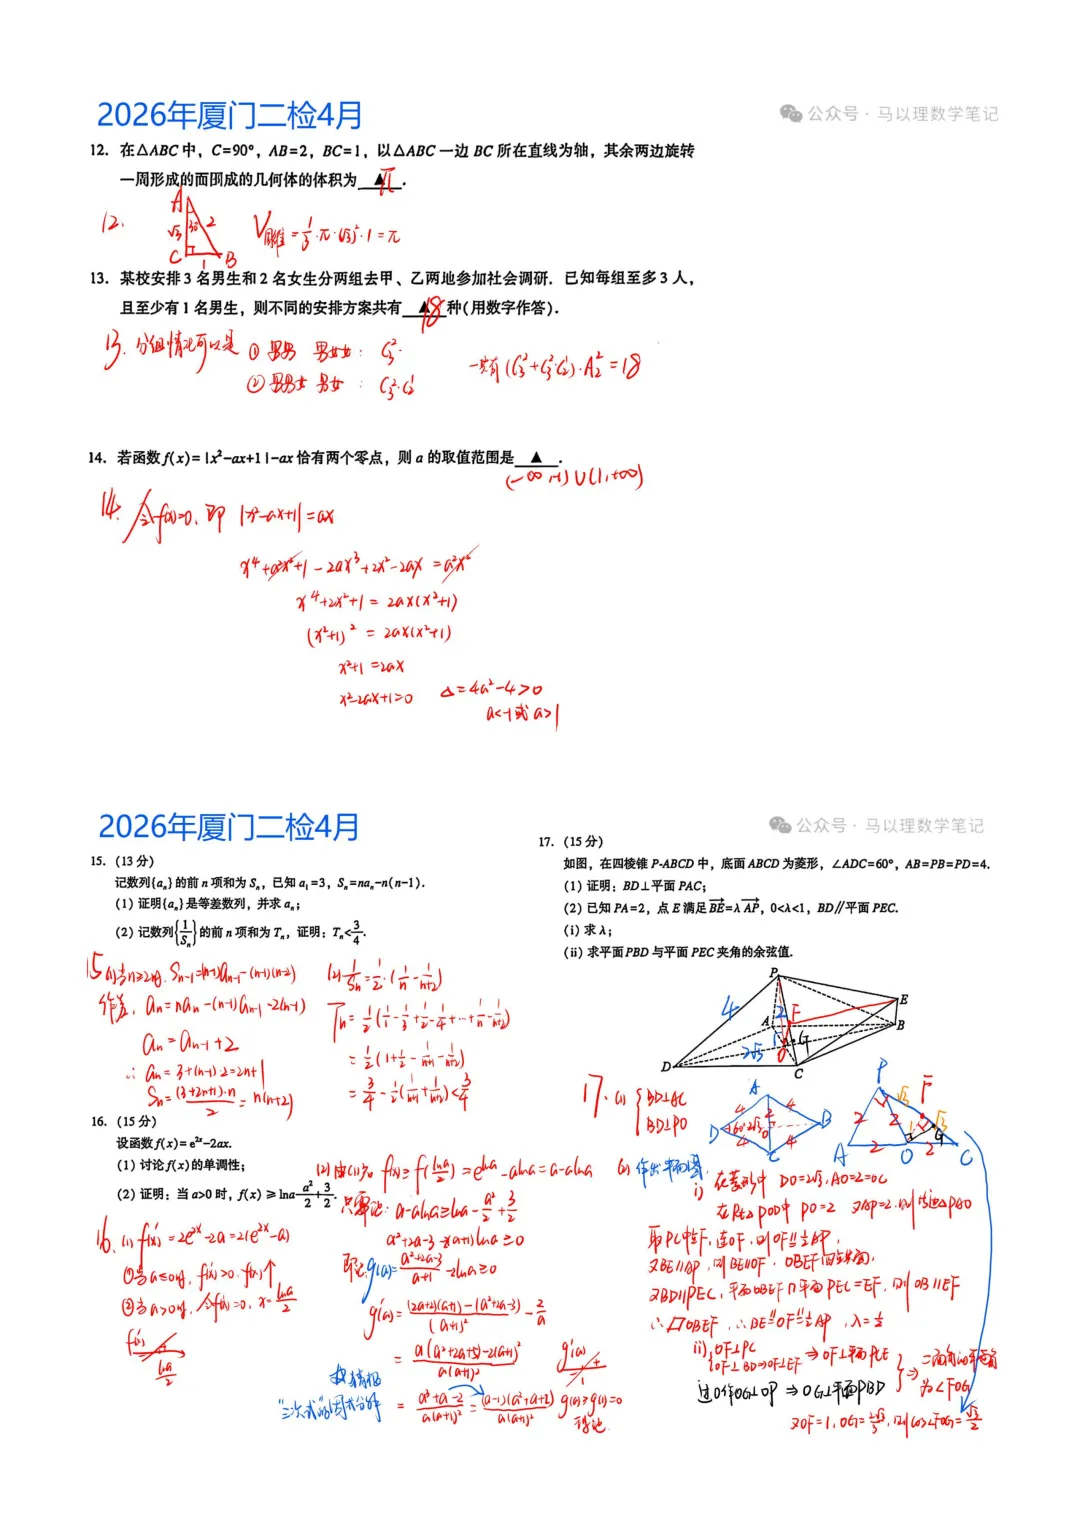 2026年厦门二检4月
公众号·马以理数学笔记
12. 在△ABC 中，C=90°，AB=2，BC=1，以△ABC 一边 BC 所在直线为轴，其余两边旋转
一周形成的面围成的几何体的体积为 ▲ .
π
12.
A
√3 30° 2
C 1 B
V雕 = 1/3·π·(√3)²·1 = π
13. 某校安排 3 名男生和 2 名女生分两组去甲、乙两地参加社会调研．已知每组至多 3 人，
且至少有 1 名男生，则不同的安排方案共有 ▲ 种(用数字作答)．
18
13. 分组情况可以是 ① 男男 男女女：C₃²·
② 男男女 男女：C₃²·C₂¹
一共有 (C₃²+C₃²·C₂¹)·A₂² = 18
14. 若函数 f(x)=|x²-ax+1|-ax 恰有两个零点，则 a 的取值范围是 ▲ .
(-∞,-1)∪(1,+∞)
14. 令f(x)=0, 即 |x²-ax+1|=ax
x⁴+a²x²+1-2ax³+2x²-2ax=a²x²
x⁴+2x²+1=2ax(x²+1)
(x²+1)²=2ax(x²+1)
x²+1=2ax
x²-2ax+1=0 Δ=4a²-4>0
a<-1或a>1
2026年厦门二检4月
公众号·马以理数学笔记
15. (13 分)
记数列{aₙ}的前 n 项和为 Sₙ，已知 a₁=3，Sₙ=naₙ-n(n-1).
(1) 证明{aₙ}是等差数列，并求 aₙ;
(2) 记数列{1/Sₙ}的前 n 项和为 Tₙ，证明：Tₙ<3/4.
15 (1)当n≥2时, Sₙ₋₁=(n-1)aₙ₋₁-(n-1)(n-2)
作差, aₙ=naₙ-(n-1)aₙ₋₁-2(n-1)
aₙ=aₙ₋₁+2
∴ aₙ=3+(n-1)·2=2n+1
Sₙ=(3+2n+1)·n/2=n(n+2)
(2) 1/Sₙ=1/2·(1/n-1/(n+2))
Tₙ=1/2(1/1-1/3+1/2-1/4+…+1/n-1/(n+2))
=1/2(1+1/2-1/(n+1)-1/(n+2))
=3/4-1/2(1/(n+1)+1/(n+2))<3/4
16. (15 分)
设函数 f(x)=e²ˣ-2ax.
(1) 讨论 f(x)的单调性;
(2) 证明：当 a>0 时，f(x)≥lna-a²/2+3/2.
16. (1) f'(x)=2e²ˣ-2a=2(e²ˣ-a)
①当a≤0时, f'(x)>0, f(x)↑
②当a>0时, 令f'(x)=0, x=lna/2
f'(x) - +
lna/2
(2) 由(1)知 f(x)≥f(lna/2)=e^lna-alna=a-alna
只需证: a-alna≥lna-a²/2+3/2
a²+2a-3-2(a+1)lna≥0
即证 g(a)=(a²+2a-3)/(a+1)-2lna≥0
g'(a)=((2a+2)(a+1)-(a²+2a-3))/(a+1)²-2/a
=(a(a²+2a+5)-2(a+1)²)/(a(a+1)²)
=(a³+a-2)/(a(a+1)²)=(a-1)(a²+a+2)/(a(a+1)²)
g'(a) - + 1
g(a)≥g(1)=0
得证
"三次式"的因式分解
17. (15 分)
如图，在四棱锥 P-ABCD 中，底面 ABCD 为菱形，∠ADC=60°，AB=PB=PD=4.
(1) 证明：BD⊥平面 PAC;
(2) 已知 PA=2，点 E 满足BE=λAP，0<λ<1，BD∥平面 PEC.
(i) 求 λ;
(ii) 求平面 PBD 与平面 PEC 夹角的余弦值.
P
E
A F B
4 2 G
2√3 O
D C
17. (1) { BD⊥AC
BD⊥PO
A
4 4
D 60° 2√3 2 O B
4 4
C
P
√3 F
2 2 √3
1 G
A 2 O 2 C
(2) 作出平面图,
i) 在菱形中 DO=2√3, AO=2=OC
在Rt△POD中 PO=2 又AP=2,则等边△PAO
取PC中点F, 连OF, 则OF∥=1/2AP,
又BE∥AP, 则BE∥OF, OBEF四点共面,
又BD∥PEC, 平面OBEF∩平面PEC=EF, 则OB∥EF
∴▱OBEF, ∴BE∥=OF∥=1/2AP, λ=1/2
ii) { OF⊥PC
OF⊥BD⇒OF⊥EF ⇒OF⊥平面PCE
过O作OG⊥OP ⇒OG⊥平面PBD
⇒二面角的平面角
为∠FOG
又OF=1, OG=2√3/3, 则cos∠FOG=√3/2